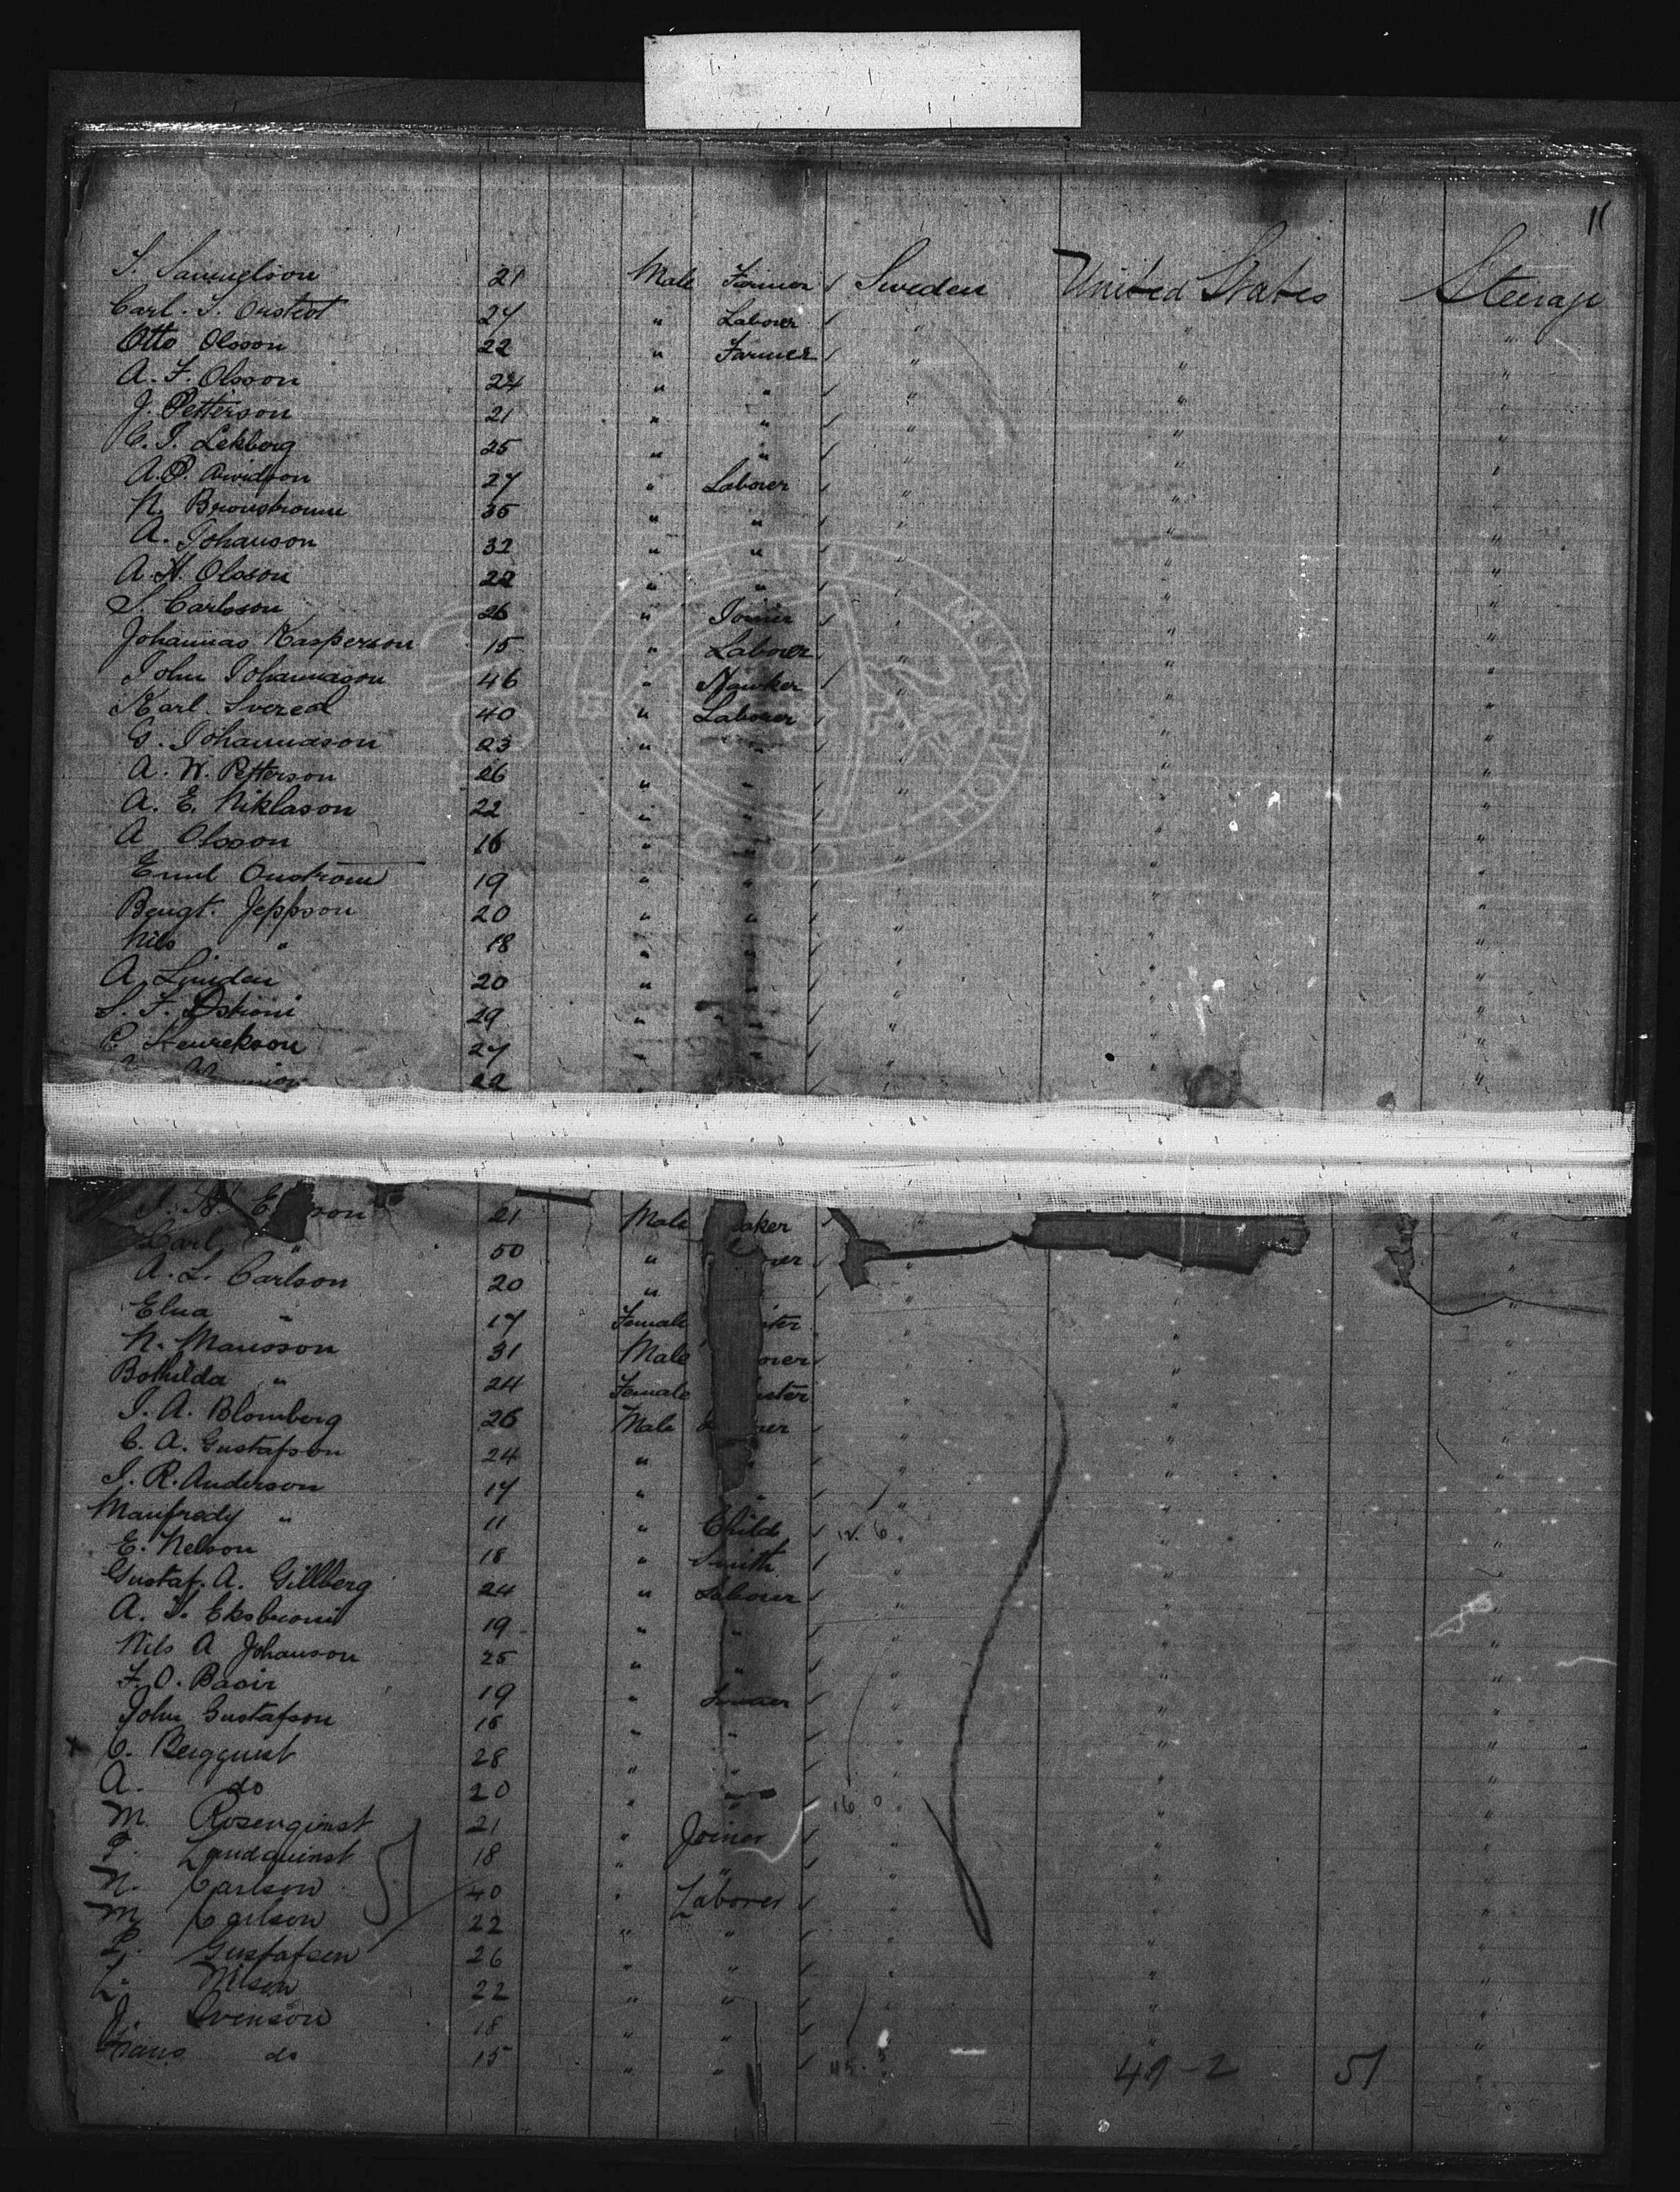 11
S. Samuelson 21 Male Farmer / Sweden United States Steerage
Carl. J. 27 " Laborer / " " "
Otto Olsson 22 " Farmer / " " "
A. F. Olsson 24 " " / " " "
J. Petterson 21 " " / " " "
C. J. Lekberg 25 " " / " " "
A. P. Arvidson 27 " Laborer / " " "
N. 35 " " / " " "
A. Johanson 32 " " / " " "
A. H. Olsson 22 " " / " " "
S. Carlsson 26 " Joiner / " " "
Johannas Kasperson 15 " Laborer / " " "
John Johannason 46 " Hawker / " " "
Karl 40 " Laborer / " " "
G. Johannason 23 " " / " " "
A. W. Petterson 26 " " / " " "
A. E. Niklason 22 " " / " " "
A Olsson 16 " " / " " "
Emil 19 " " / " " "
Bengt. Jeppson 20 " " / " " "
Nils " 18 " " / " " "
A. Linden 20 " " / " " "
S. F. 29 " " / " " "
P. Henrekson 27 " " / " " "
22
21 Male aker / "
Carl " 50 " rer / " "
A. L. Carlson 20 " / " "
Elna " 17 Female ster " " "
N. Mansson 31 Male orer / " " "
Bothilda " 24 Female ster " " "
J. A. Blomberg 26 Male rer / " " "
C. A. Gustafson 24 " " / " " "
J. R. Anderson 17 " " / " " "
Manfredy " 11 " Child / " " "
E. Nelson 18 " Smith / " " "
Gustaf. A. Gillberg 24 " Laborer / " " "
A. 19 " " / " " "
Nils A Johanson 25 " " / " " "
F. O. 19 " / " " "
John Gustafson 16 " " / " " "
C. Bergquist 28 " " / " " "
A. do 20 " " / " " "
M. Rosenquist 21 " Joiner / " " "
P. Landquinst 18 " " / " " "
N. Carlson 40 " Laborer / " " "
M Carlson 22 " " / " " "
P. Gustafsen 26 " " / " " "
L. Nilson 22 " " / " " "
J. Svenson 18 " " / " " "
Frans do 15 " " / " "
49-2 51